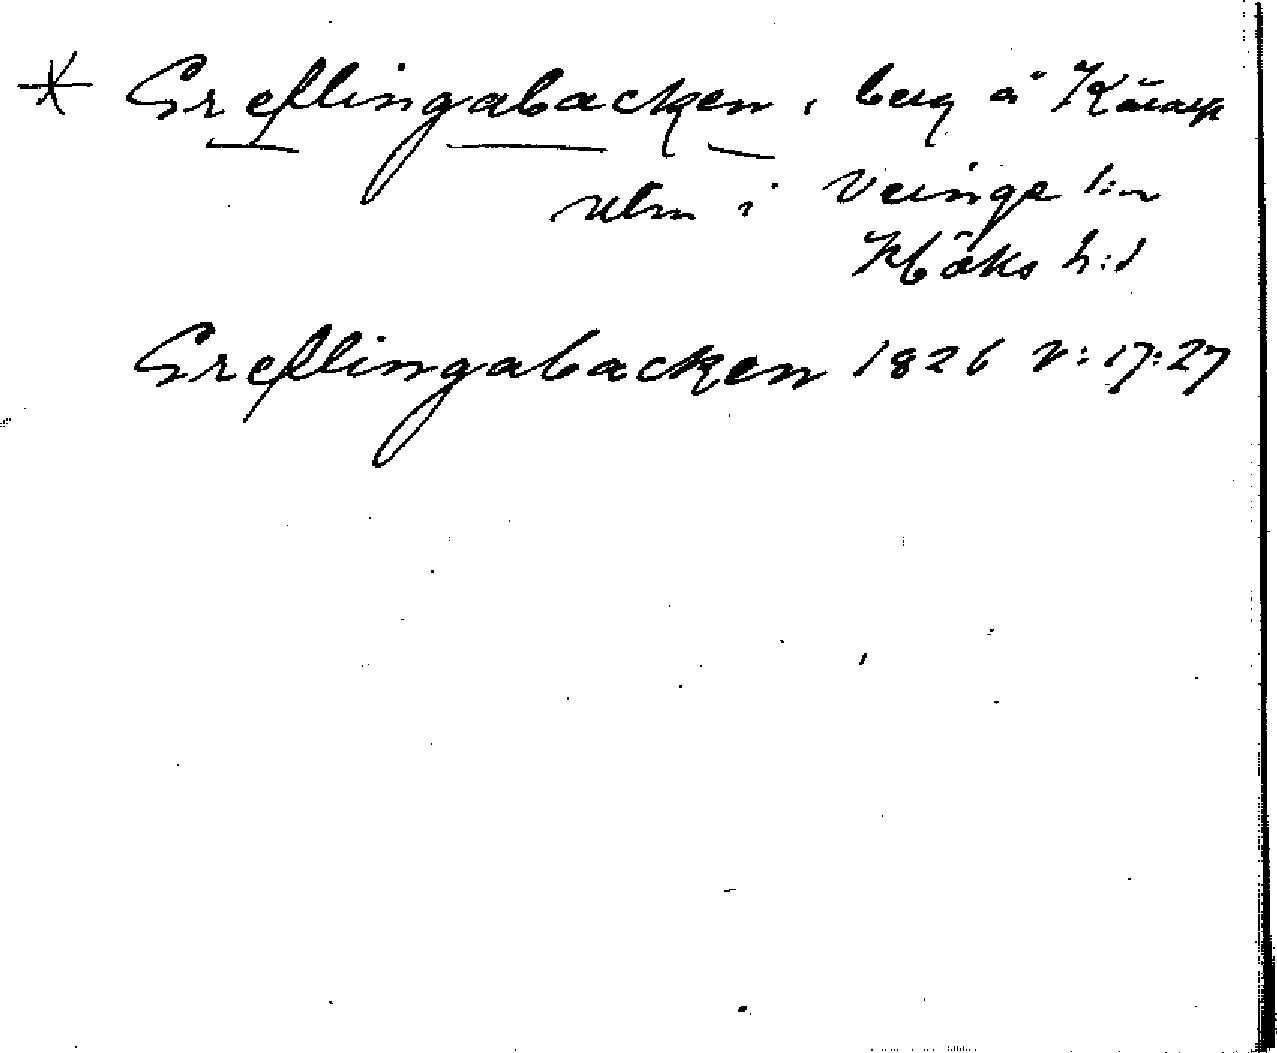 * Greflingabacken, berg å Kärarp
utm i Veinge s:n
Höks h:d
Greflingabacken 1826 V:17:27